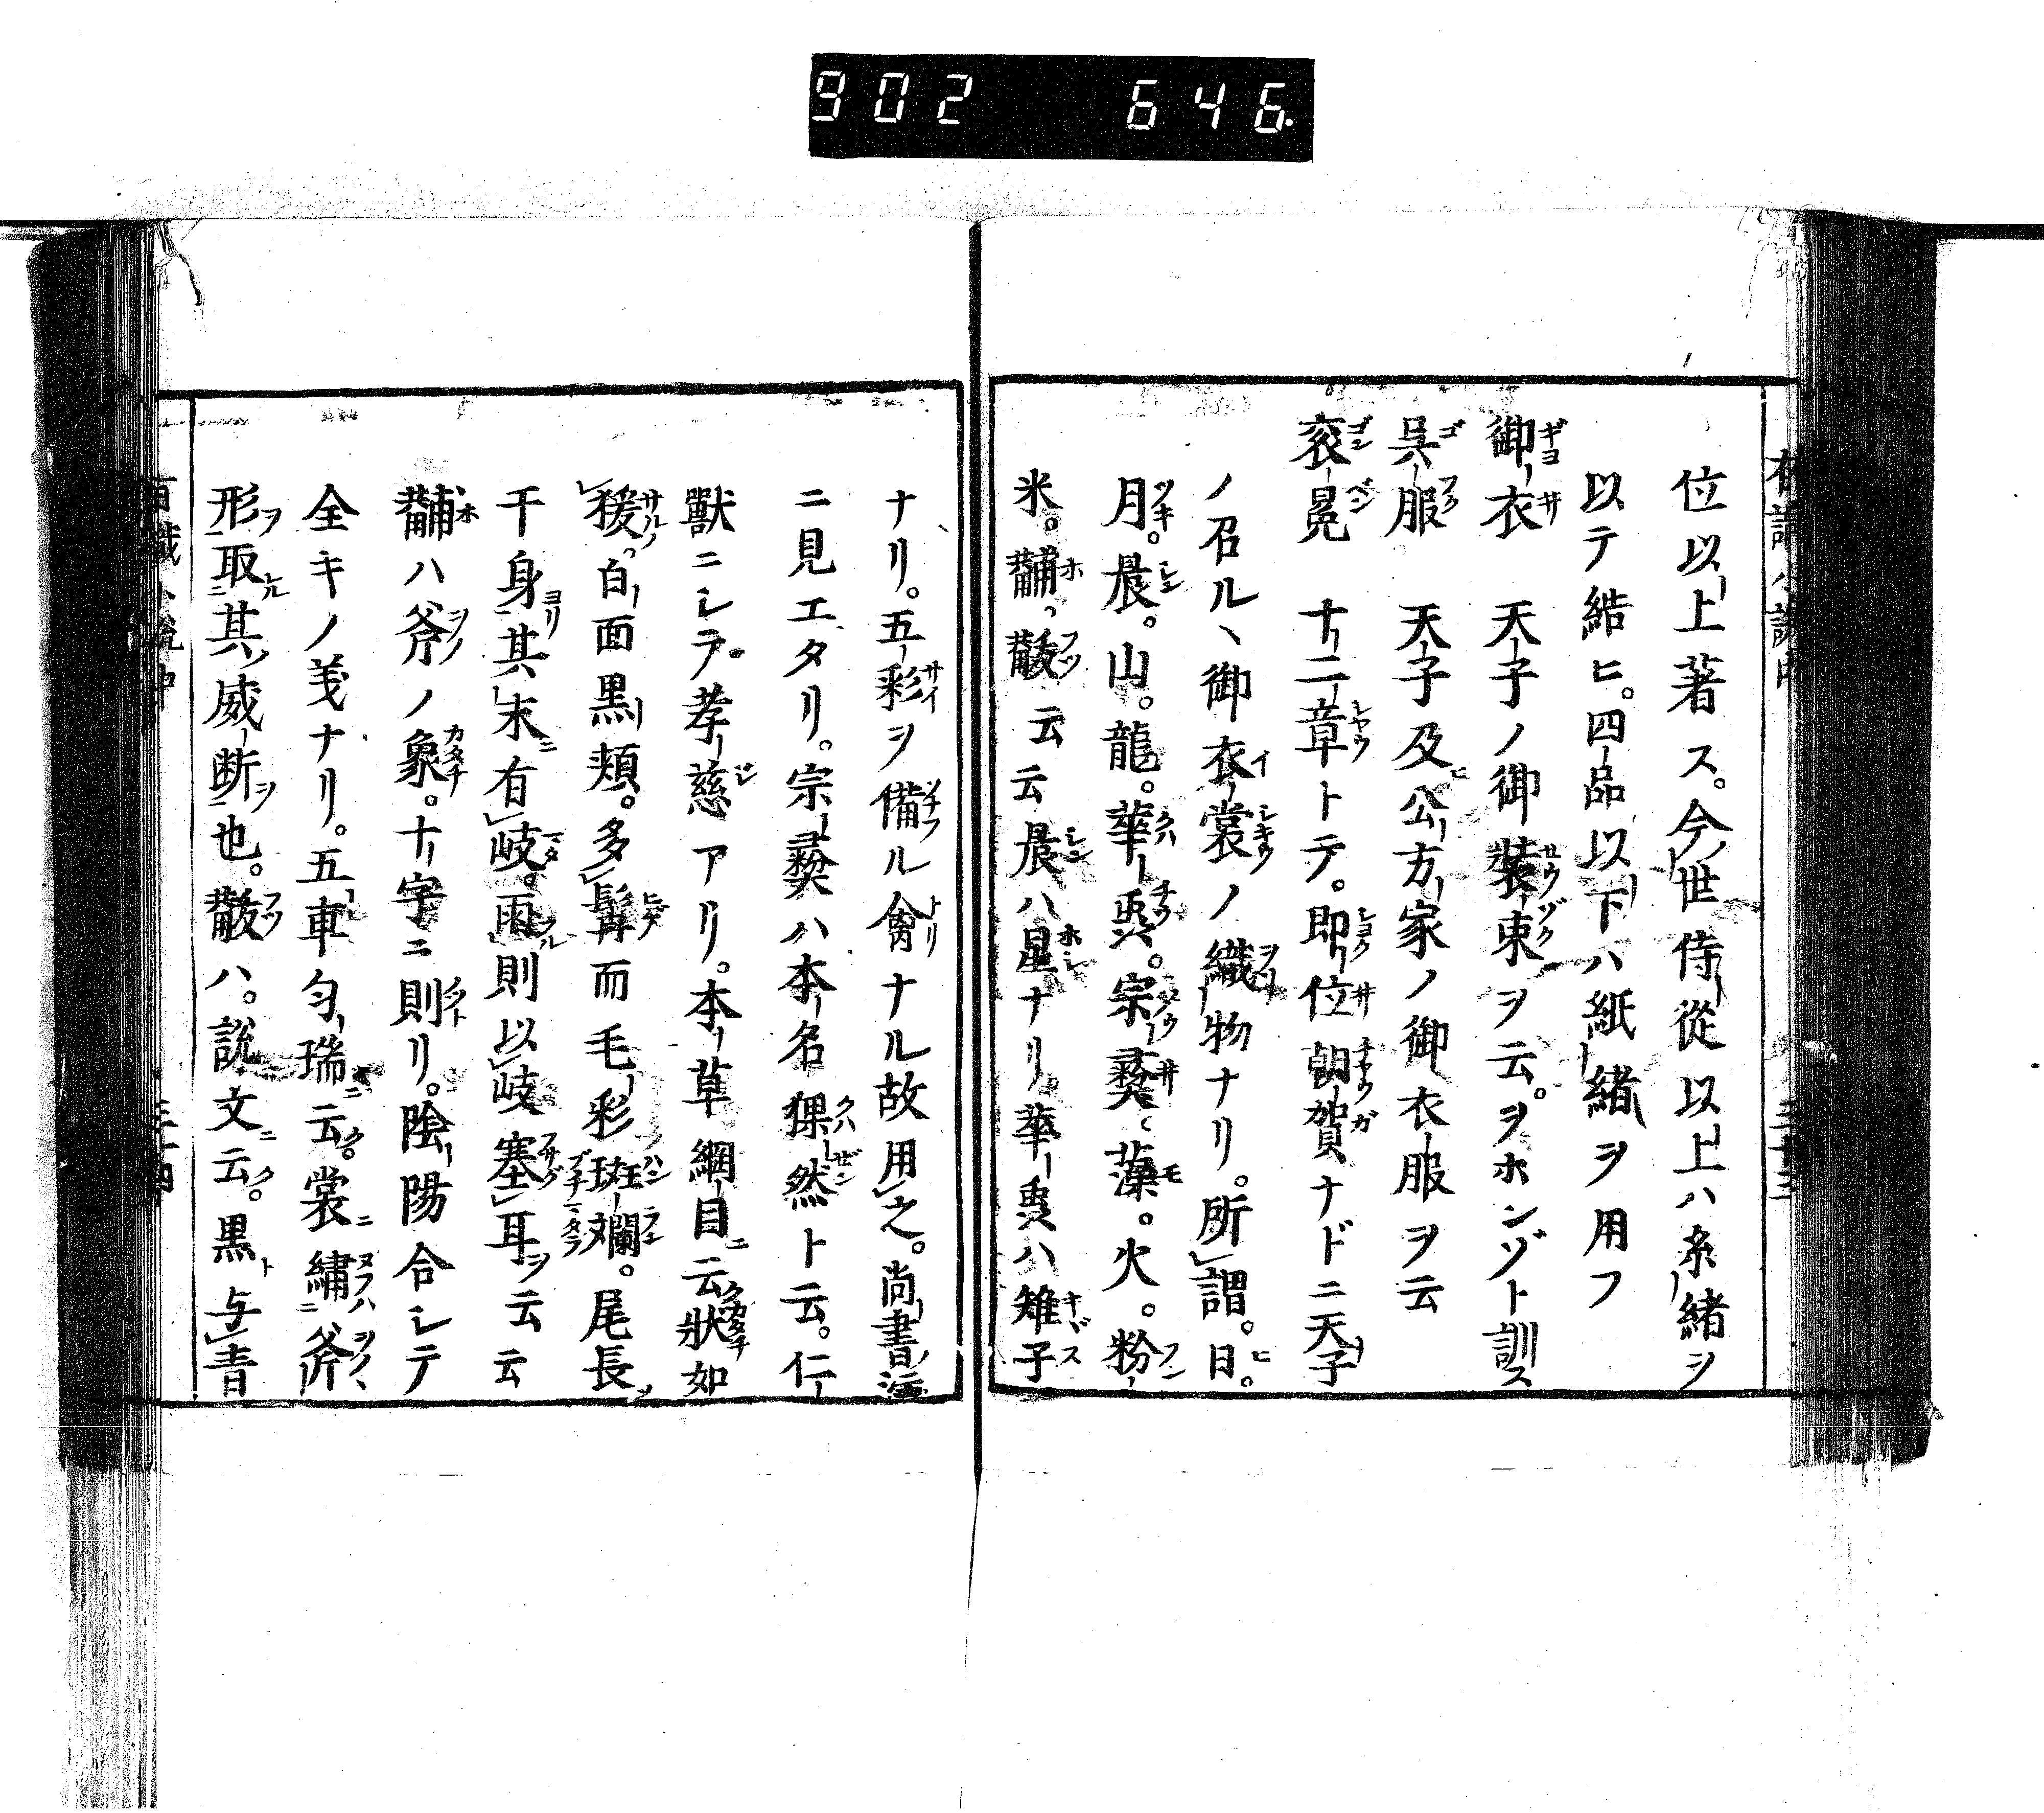 902 646.
位以上著ス。今世侍從以上ハ糸緒ヲ
以テ結ヒ。四品以下ハ紙緒ヲ用フ
御衣 天子ノ御裝束ヲ云。ヲホンゾト訓ス
呉服 天子及公方家ノ御衣服ヲ云
袞冕 十二章トテ。即位朝賀ナドニ天子
ノ召ル、御衣裳ノ織物ナリ。所謂。日。
月。晨。山。龍。華蟲。宗彜。藻。火。粉
米。黼。黻云云晨ハ星ナリ華蟲ハ雉子
ナリ。五彩ヲ備ル禽ナル故用之。尚書
ニ見エタリ。宗彜ハ本名猓然ト云。仁
獸ニシテ孝慈アリ。本草綱目ニ云狀如
猨。白面黒頬。多髯而毛彩斑斕。尾長
于身其末有岐。雨則以岐塞耳ヲ云云
黼ハ斧ノ象。十字ニ則リ。陰陽合シテ
全キノ義ナリ。五車匀瑞ニ云。裳繡斧
形取其威断也。黻ハ。說文云。黒与青